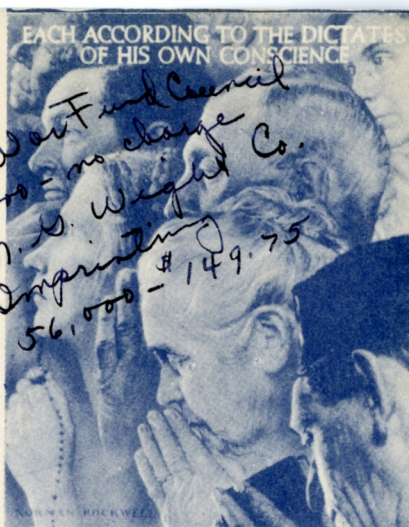 EACH ACCORDING TO THE DICTATES
OF HIS OWN CONSCIENCE
War Fund Council
no charge
Weight Co.
Imprinting
56,000 - $149.75
NORMAN ROCKWELL